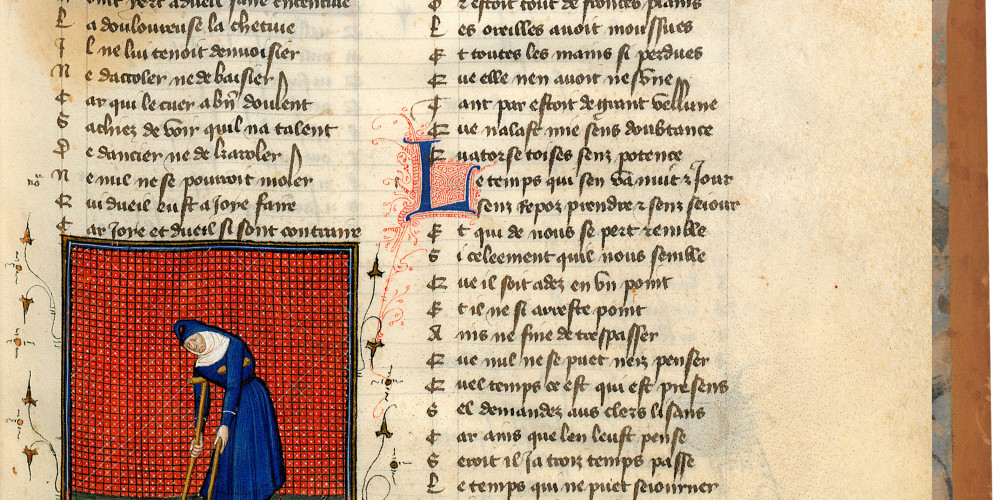 yert adueil faire ententiue
La douloureuse la chetiue
Il ne lui tenoit denuoisier
Ne dacoler ne de baisier
Car qui le cuer a bn doulent
Sachiez de voir quil na talent
De dancier ne de karoler
Ne nul ne se pourroit moler
Qui dueil eust a Joye faire
Car Joye et dueil si sont contraire
estoit tout de fronces plains
Les oreilles auoit moussues
Et toutes les mains si perdues
Que elle nen auoit nesvne
Tant par estoit de grant vellune
Que nalast mie sens doubtance
Quatorse toises senz potence
Le temps qui sen va nuit & Jour
senz repoz prendre & senz seiour
Et qui de nous se pert & emble
Si celeement quil nous semble
Que il soit adez en vn point
Et il ne si arreste point
Ains ne fine de trespasser
Que nul ne se puet neiz penser
Quel temps ce est qui est presens
Sel demandez aus clers lisans
Car ains que len leust pense
Seroit il Ja troiz temps passe
Le temps qui ne puet seiourner